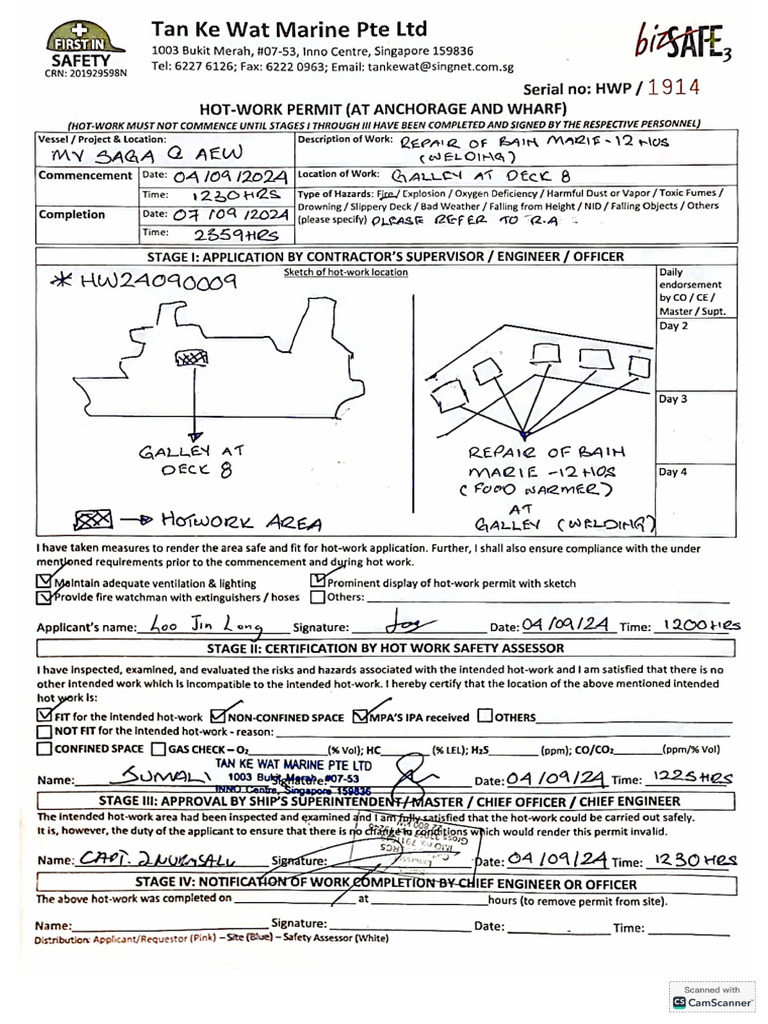 FIRST IN
SAFETY
CRN: 201929598N
Tan Ke Wat Marine Pte Ltd
1003 Bukit Merah, #07-53, Inno Centre, Singapore 159836
Tel: 6227 6126; Fax: 6222 0963; Email: tankewat@singnet.com.sg
bizSAFE3
Serial no: HWP / 1914
HOT-WORK PERMIT (AT ANCHORAGE AND WHARF)
(HOT-WORK MUST NOT COMMENCE UNTIL STAGES I THROUGH III HAVE BEEN COMPLETED AND SIGNED BY THE RESPECTIVE PERSONNEL)
Vessel / Project & Location:
MV SAGA @ AEW
Description of Work: REPAIR OF BAIN MARIE - 12 NOS
(WELDING)
Commencement Date: 04/09/2024
Time: 1230HRS
Location of Work: GALLEY AT DECK 8
Completion Date: 07/09/2024
Time: 2359HRS
Type of Hazards: Fire / Explosion / Oxygen Deficiency / Harmful Dust or Vapor / Toxic Fumes /
Drowning / Slippery Deck / Bad Weather / Falling from Height / NID / Falling Objects / Others
(please specify) PLEASE REFER TO R.A
STAGE I: APPLICATION BY CONTRACTOR'S SUPERVISOR / ENGINEER / OFFICER
Sketch of hot-work location
* HW24090009
Daily
endorsement
by CO / CE /
Master / Supt.
Day 2
Day 3
Day 4
GALLEY AT
DECK 8
HOTWORK AREA
REPAIR OF BAIN
MARIE - 12 NOS
(FOOD WARMER)
AT
GALLEY (WELDING)
I have taken measures to render the area safe and fit for hot-work application. Further, I shall also ensure compliance with the under
mentioned requirements prior to the commencement and during hot work.
Maintain adequate ventilation & lighting
Prominent display of hot-work permit with sketch
Provide fire watchman with extinguishers / hoses
Others:
Applicant's name: Loo Jin Long Signature: Date: 04/09/24 Time: 1200HRS
STAGE II: CERTIFICATION BY HOT WORK SAFETY ASSESSOR
I have inspected, examined, and evaluated the risks and hazards associated with the intended hot-work and I am satisfied that there is no
other intended work which is incompatible to the intended hot-work. I hereby certify that the location of the above mentioned intended
hot work is:
FIT for the intended hot-work NON-CONFINED SPACE MPA's IPA received OTHERS
NOT FIT for the intended hot-work - reason:
CONFINED SPACE GAS CHECK – O2 (% Vol); HC (% LEL); H2S (ppm); CO/CO2 (ppm/% Vol)
TAN KE WAT MARINE PTE LTD
1003 Bukit Merah #07-53
INNO Centre, Singapore 159836
Name: SUMALI Signature: Date: 04/09/24 Time: 1225HRS
STAGE III: APPROVAL BY SHIP'S SUPERINTENDENT / MASTER / CHIEF OFFICER / CHIEF ENGINEER
The intended hot-work area had been inspected and examined and I am fully satisfied that the hot-work could be carried out safely.
It is, however, the duty of the applicant to ensure that there is no change in conditions which would render this permit invalid.
Name: CAPT. Signature: Date: 04/09/24 Time: 1230HRS
STAGE IV: NOTIFICATION OF WORK COMPLETION BY CHIEF ENGINEER OR OFFICER
The above hot-work was completed on at hours (to remove permit from site).
Name: Signature: Date: Time:
Distribution: Applicant/Requestor (Pink) – Site (Blue) – Safety Assessor (White)
Scanned with
CS CamScanner